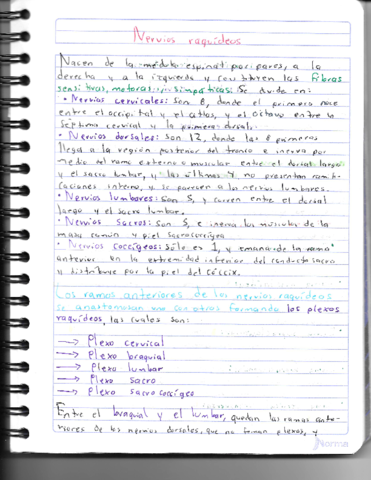 Nervios raquídeos
Nacen de la médula espinal por pares, a la
derecha y a la izquierda y contienen las fibras
sensitivas, motoras y simpáticas: Se divide en:
• Nervios cervicales: Son 8, donde el primero nace
entre el occipital y el atlas, y el octavo entre la
séptima cervical y la primera dorsal.
• Nervios dorsales: Son 12, donde las 8 primeras
llega a la región posterior del tronco e inerva por
medio del ramo externo o muscular entre el dorsal largo
y el sacro lumbar, y las últimas 4 no presentan rami-
caciones interno, y se parecen a los nervios lumbares.
• Nervios lumbares: Son 5, y corren entre el dorsal
largo y el sacro lumbar.
• Nervios Sacros: Son 5, e inerva los músculos de la
masa común y piel sacrocoxígea
• Nervios coccígeos: Sólo es 1, y emana de la rama
anterior en la extremidad inferior del conducto sacro
y distribuye por la piel del cóccix.
Los ramos anteriores de los nervios raquídeos
se anastomosan unos con otros formando los plexos
raquídeos, las cuales son:
→ Plexo cervical
→ Plexo braquial
→ Plexo lumbar
→ Plexo sacro
→ Plexo sacrococcígeo
Entre el braquial y el lumbar, quedan las ramas ante-
riores de los nervios dorsales, que no forman plexos, y
Norma